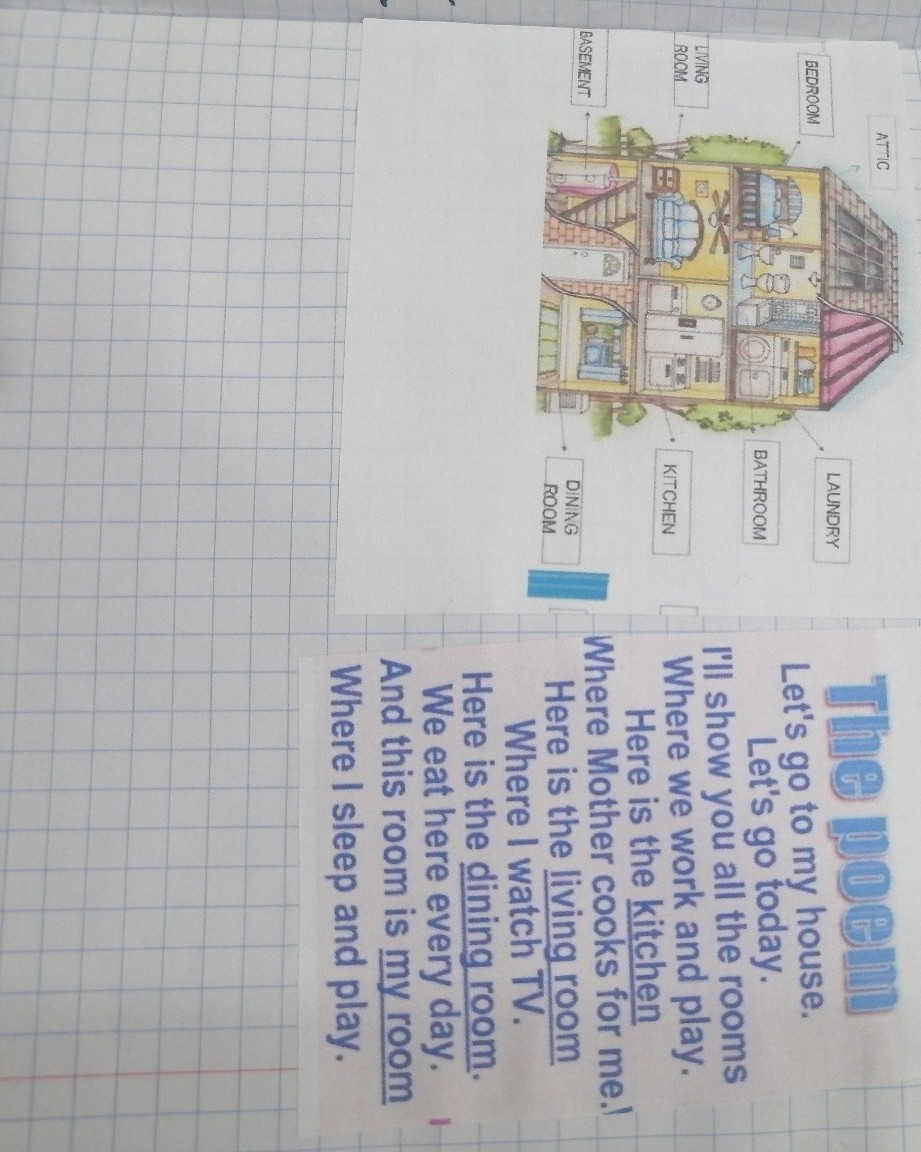 ATTIC
BEDROOM
LIVING
ROOM
BASEMENT
LAUNDRY
BATHROOM
KITCHEN
DINING
ROOM
The poem
Let's go to my house.
Let's go today.
I'll show you all the rooms
Where we work and play.
Here is the kitchen
Where Mother cooks for me.
Here is the living room
Where I watch TV.
Here is the dining room.
We eat here every day.
And this room is my room
Where I sleep and play.